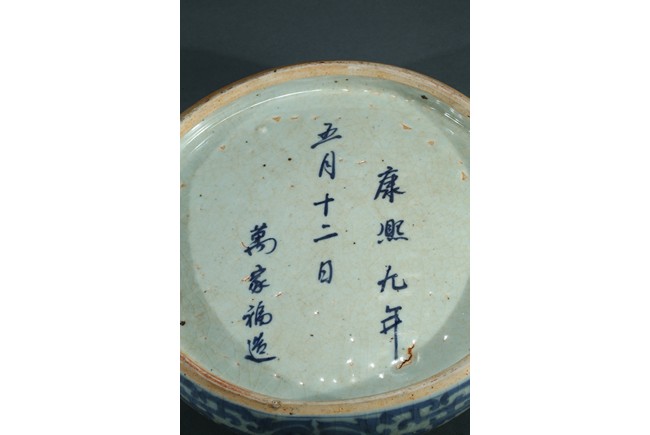 康熙九年
五月十二日
萬家福造